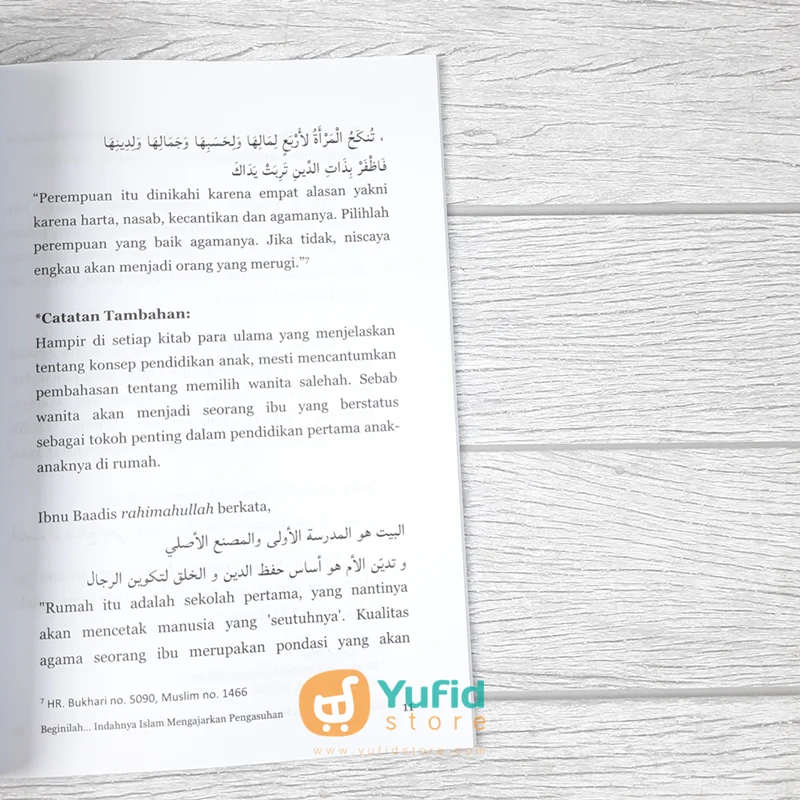 ، تُنكَحُ الْمَرْأَةُ لأَرْبَعٍ لِمَالِهَا وَلِحَسَبِهَا وَجَمَالِهَا وَلِدِينِهَا
فَاظْفَرْ بِذَاتِ الدِّينِ تَرِبَتْ يَدَاكَ
“Perempuan itu dinikahi karena empat alasan yakni
karena harta, nasab, kecantikan dan agamanya. Pilihlah
perempuan yang baik agamanya. Jika tidak, niscaya
engkau akan menjadi orang yang merugi.”⁷
*Catatan Tambahan:
Hampir di setiap kitab para ulama yang menjelaskan
tentang konsep pendidikan anak, mesti mencantumkan
pembahasan tentang memilih wanita salehah. Sebab
wanita akan menjadi seorang ibu yang berstatus
sebagai tokoh penting dalam pendidikan pertama anak-
anaknya di rumah.
Ibnu Baadis rahimahullah berkata,
البيت هو المدرسة الأولى والمصنع الأصلي
و تديّن الأم هو أساس حفظ الدين و الخلق لتكوين الرجال
"Rumah itu adalah sekolah pertama, yang nantinya
akan mencetak manusia yang 'seutuhnya'. Kualitas
agama seorang ibu merupakan pondasi yang akan
⁷ HR. Bukhari no. 5090, Muslim no. 1466
Beginilah... Indahnya Islam Mengajarkan Pengasuhan
11
Yufid
store
www.yufidstore.com